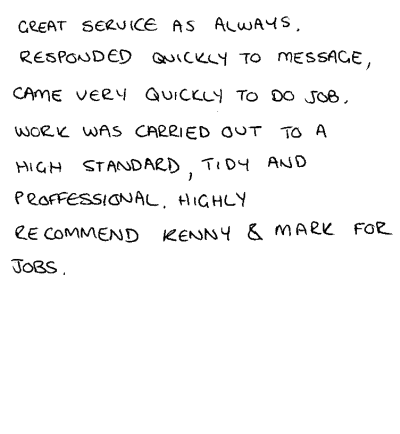 GREAT SERVICE AS ALWAYS.
RESPONDED QUICKLY TO MESSAGE,
CAME VERY QUICKLY TO DO JOB.
WORK WAS CARRIED OUT TO A
HIGH STANDARD, TIDY AND
PROFFESSIONAL. HIGHLY
RECOMMEND KENNY & MARK FOR
JOBS.